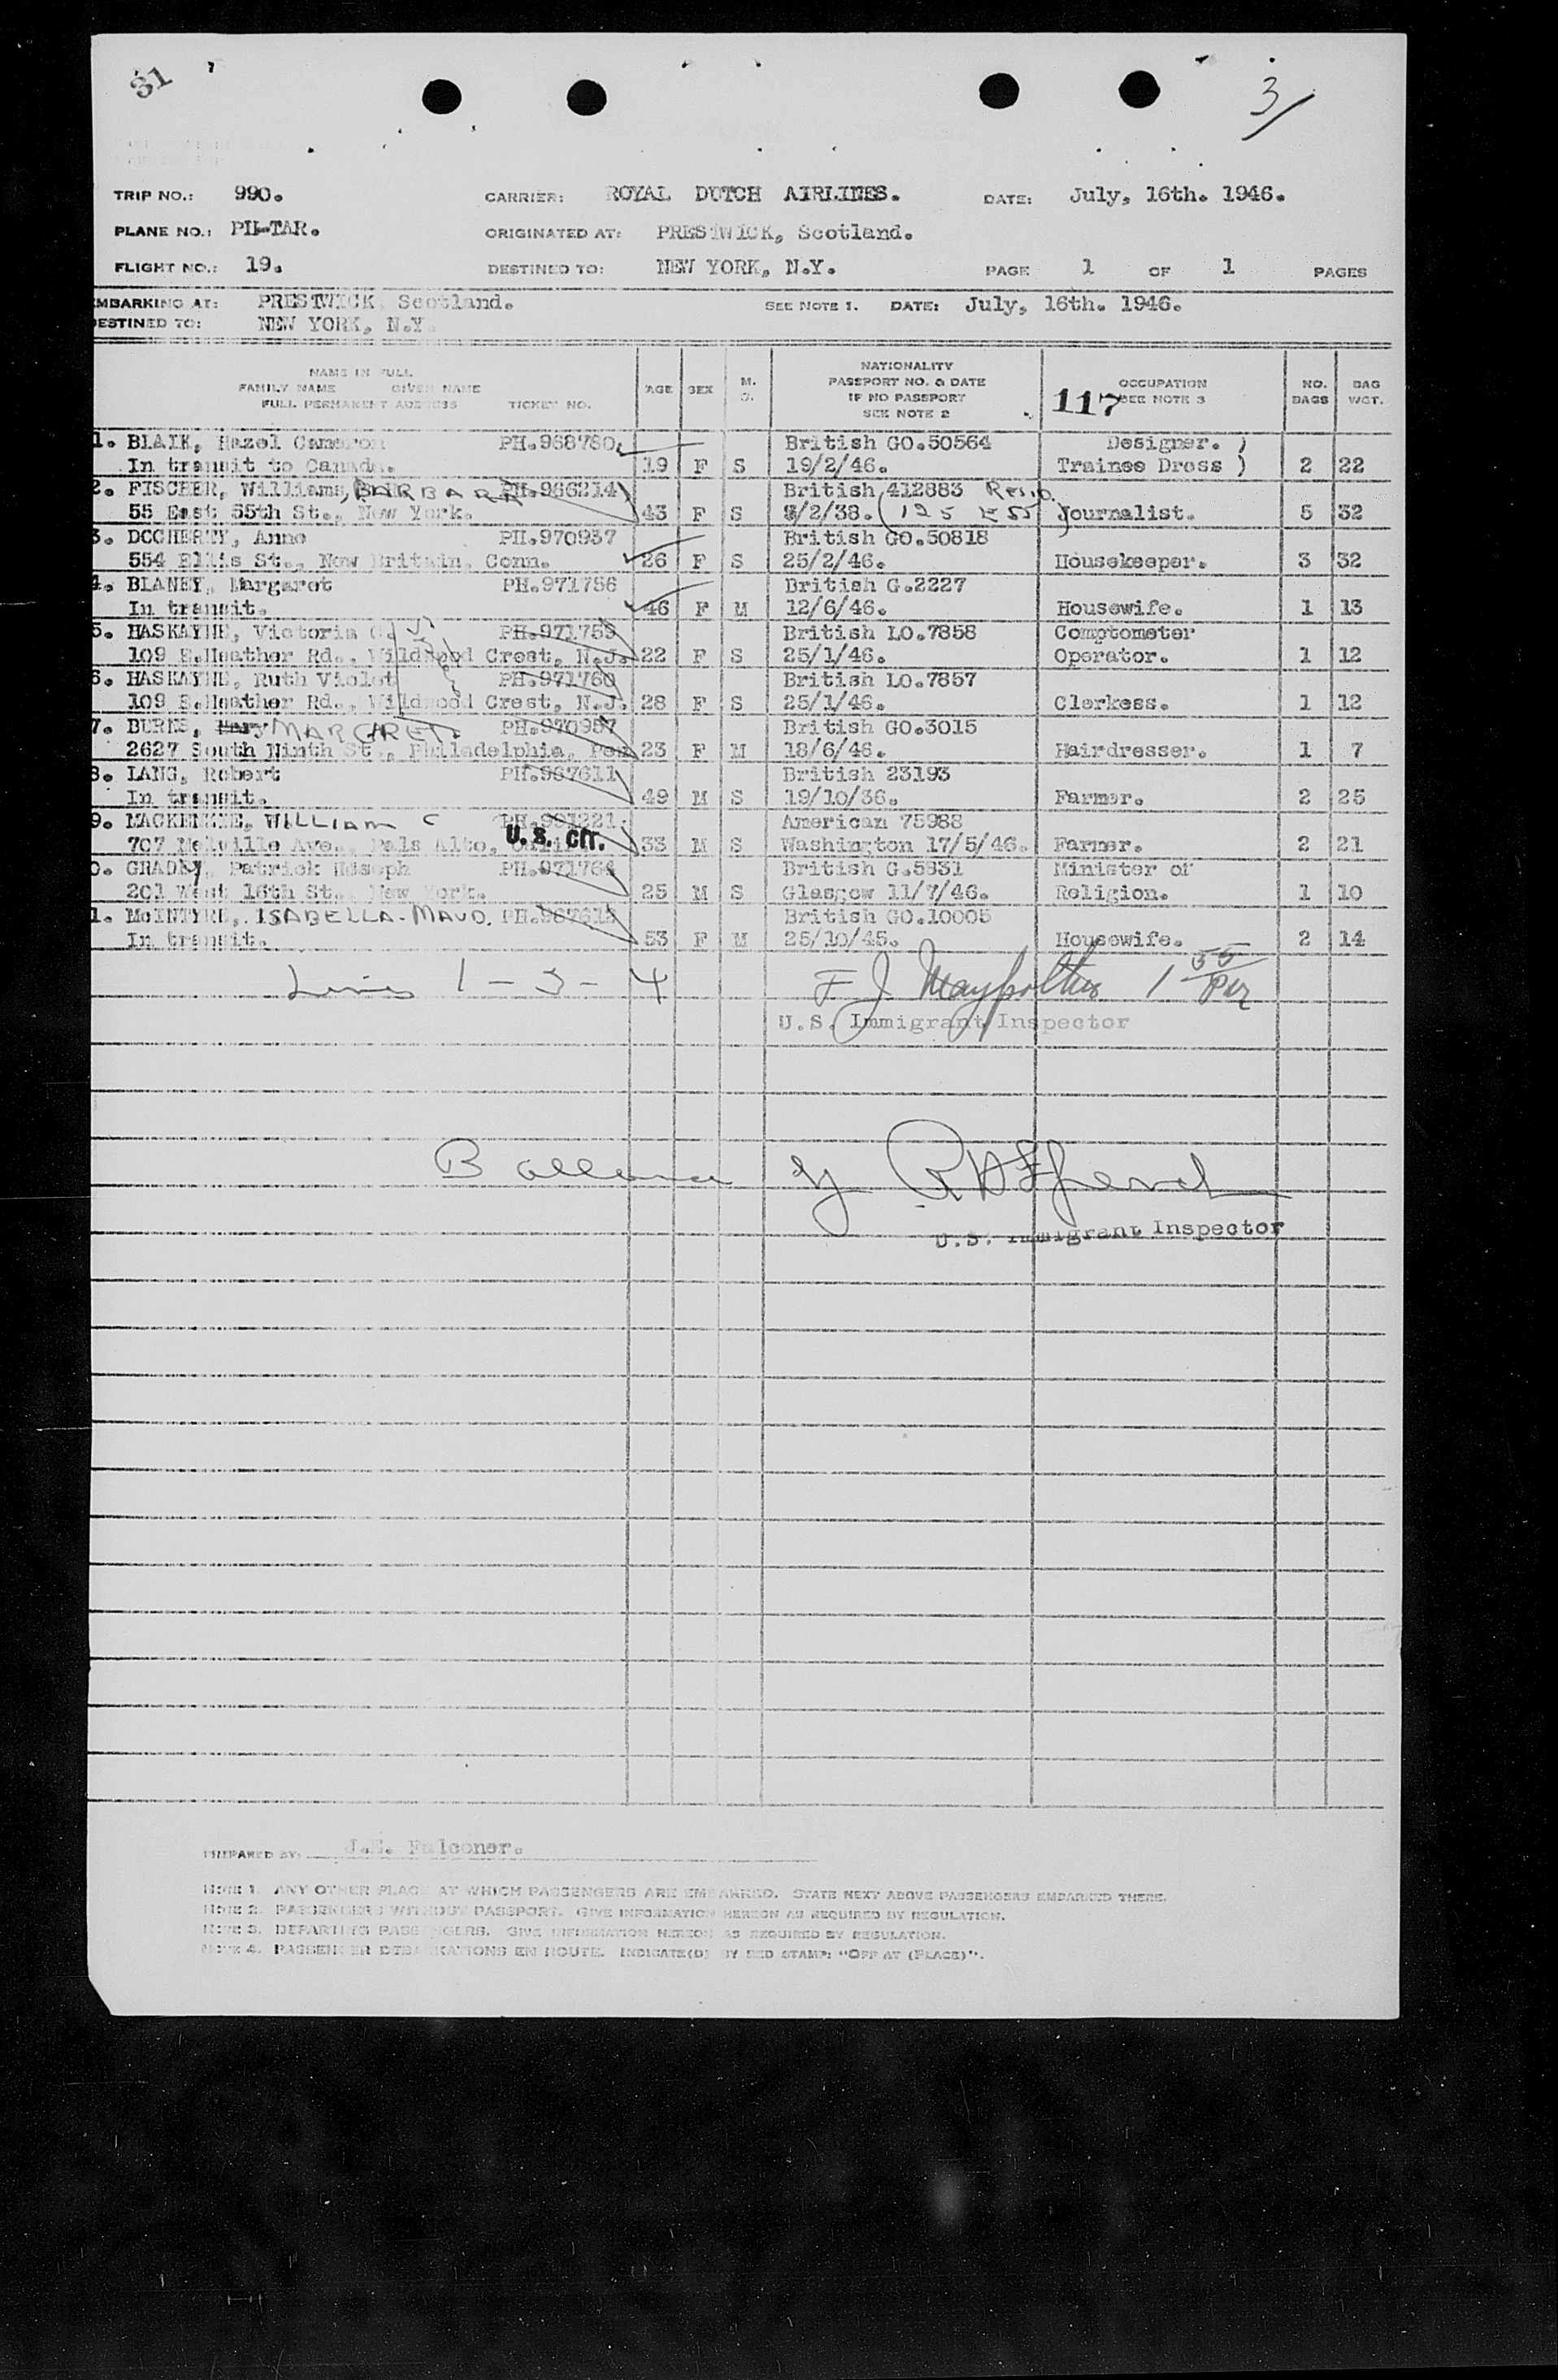 81
3/
TRIP NO.: 990. CARRIER: ROYAL DUTCH AIRLINES. DATE: July, 16th. 1946.
PLANE NO.: PH-TAR. ORIGINATED AT: PRESTWICK, Scotland.
FLIGHT NO.: 19. DESTINED TO: NEW YORK, N.Y. PAGE 1 OF 1 PAGES
EMBARKING AT: PRESTWICK Scotland. SEE NOTE 1. DATE: July, 16th. 1946.
DESTINED TO: NEW YORK, N.Y.
NAME IN FULL
FAMILY NAME GIVEN NAME
FULL PERMANENT ADDRESS TICKET NO. AGE SEX M. S. NATIONALITY PASSPORT NO. & DATE IF NO PASSPORT SEE NOTE 2 OCCUPATION SEE NOTE 3 NO. BAGS BAG WGT.
117
1. BLAIK, Hazel Cameron PH.968780 British GO.50564 Designer. )
In transit to Canada. 19 F S 19/2/46. Trainee Dress ) 2 22
2. FISCHER, Williams, BARBARA PH.966214 British 412883
55 East 55th St., New York. 43 F S /2/38. Journalist. 5 32
3. DOCHERTY, Anne PH.970937 British GO.50818
554 Ellis St., New Britain, Conn. 26 F S 25/2/46. Housekeeper. 3 32
4. BLANEY, Margaret PH.971756 British G.2227
In transit. 46 F M 12/6/46. Housewife. 1 13
5. HASKAYNE, Victoria C. PH.971759 British LO.7858 Comptometer
109 E.Heather Rd., Wildwood Crest, N.J. 22 F S 25/1/46. Operator. 1 12
6. HASKAYNE, Ruth Violet PH.971760 British LO.7857
109 E.Heather Rd., Wildwood Crest, N.J. 28 F S 25/1/46. Clerkess. 1 12
7. BURNS, MARGARET. PH.970957 British GO.3015
2627 South Ninth St., Philadelphia, Pen 23 F M 18/6/46. Hairdresser. 1 7
8. LANG, Robert PH.967611 British 23193
In transit. 49 M S 19/10/36. Farmer. 2 25
9. MACKENZIE, WILLIAM C PH.991221 American 75988
707 Melville Ave., Pals Alto, U.S. Cit. 33 M S Washington 17/5/46. Farmer. 2 21
0. GRADY, Patrick PH.971764 British G.5931 Minister of
201 West 16th St., New York. 25 M S Glasgow 11/7/46. Religion. 1 10
1. McINTYRE, ISABELLA-MAUD. PH.967615 British GO.10005
In transit. 53 F M 25/10/45. Housewife. 2 14
Lines 1 - 3 - 4 F J 1 55
U.S. Immigrant Inspector
B
U.S. Immigrant Inspector
PREPARED BY: J.E. Falconer.
NOTE 1. ANY OTHER PLACE AT WHICH PASSENGERS ARE EMBARKED. STATE NEXT ABOVE PASSENGERS EMBARKED THERE.
NOTE 2. PASSENGERS WITHOUT PASSPORT. GIVE INFORMATION HEREON AS REQUIRED BY REGULATION.
NOTE 3. DEPARTING PASSENGERS. GIVE INFORMATION HEREON AS REQUIRED BY REGULATION.
NOTE 4. PASSENGER DEBARKATIONS EN ROUTE. INDICATE(D) BY RED STAMP: "OFF AT (PLACE)".